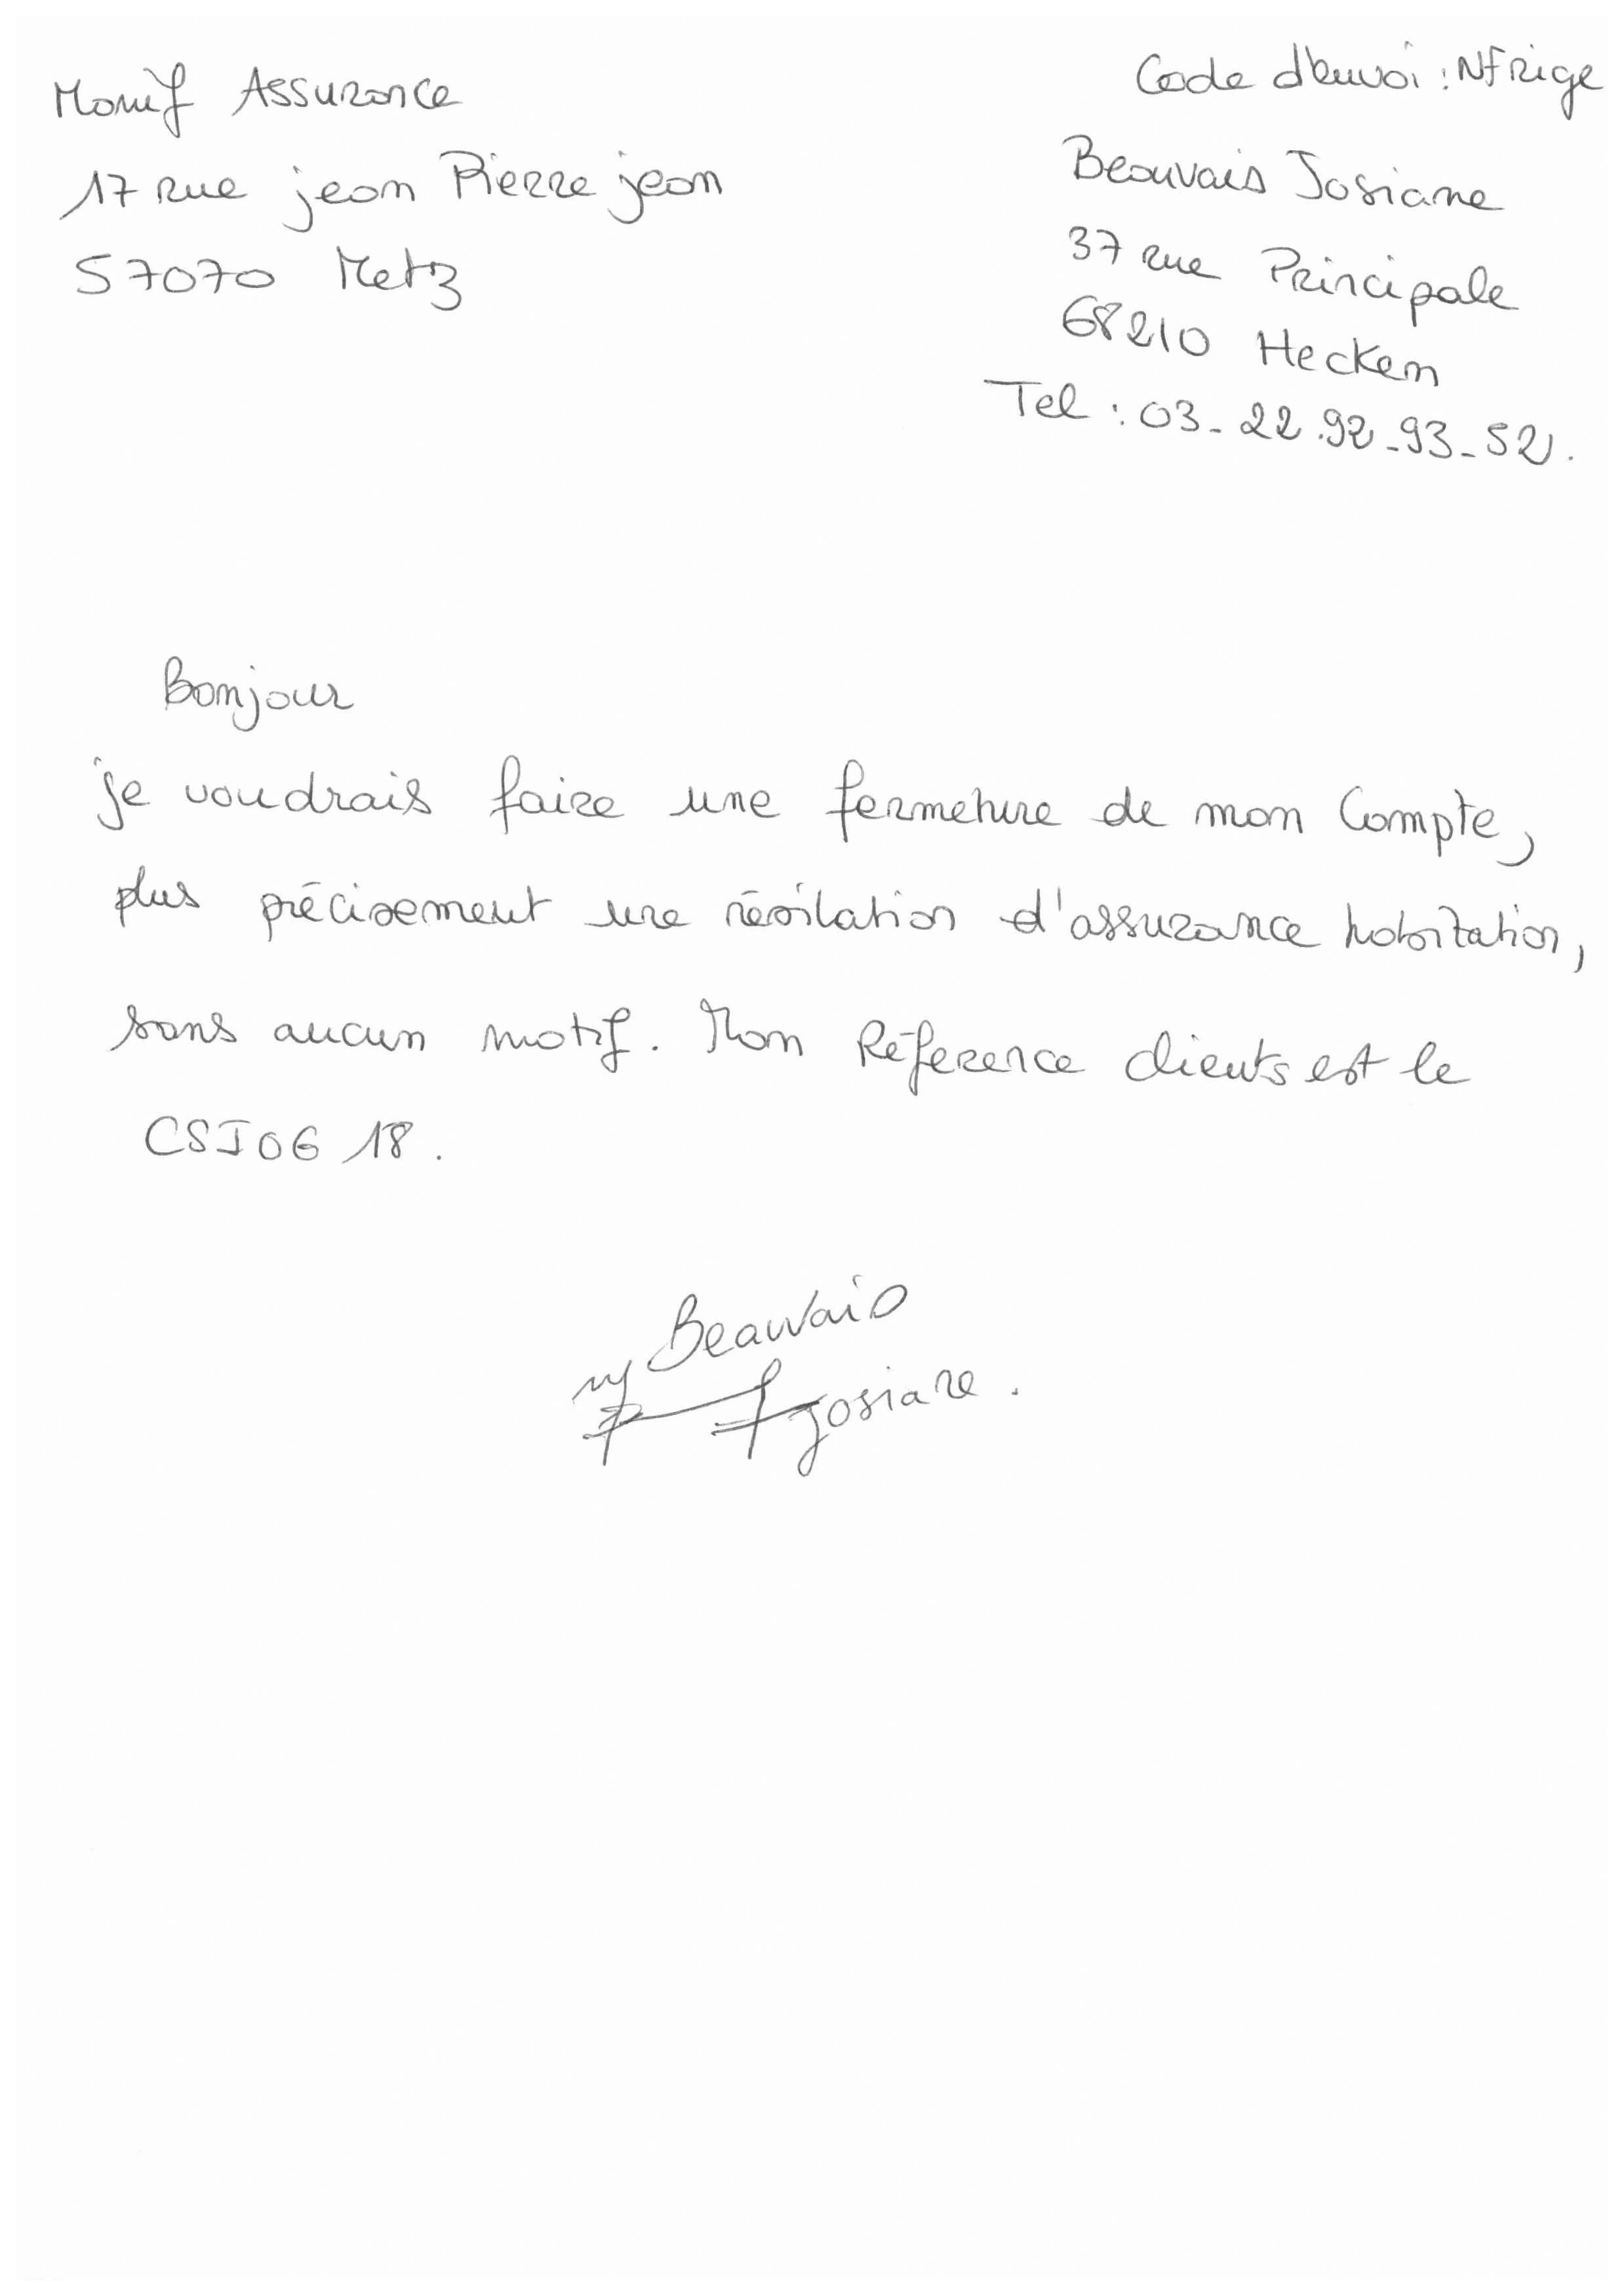 Code d'envoi : NFRige
Manif Assurance
17 rue jean Pierre jean
57070 Metz
Beauvais Josiane
37 rue Principale
68210 Hecken
Tel : 03-22.92-93-52.
Bonjour
je voudrais faire une fermeture de mon Compte,
plus précisement une résilation d'assurance habitation,
sans aucun motif. Mon Réference clients est le
CSJOG 18.
Beauvais
Josiane.